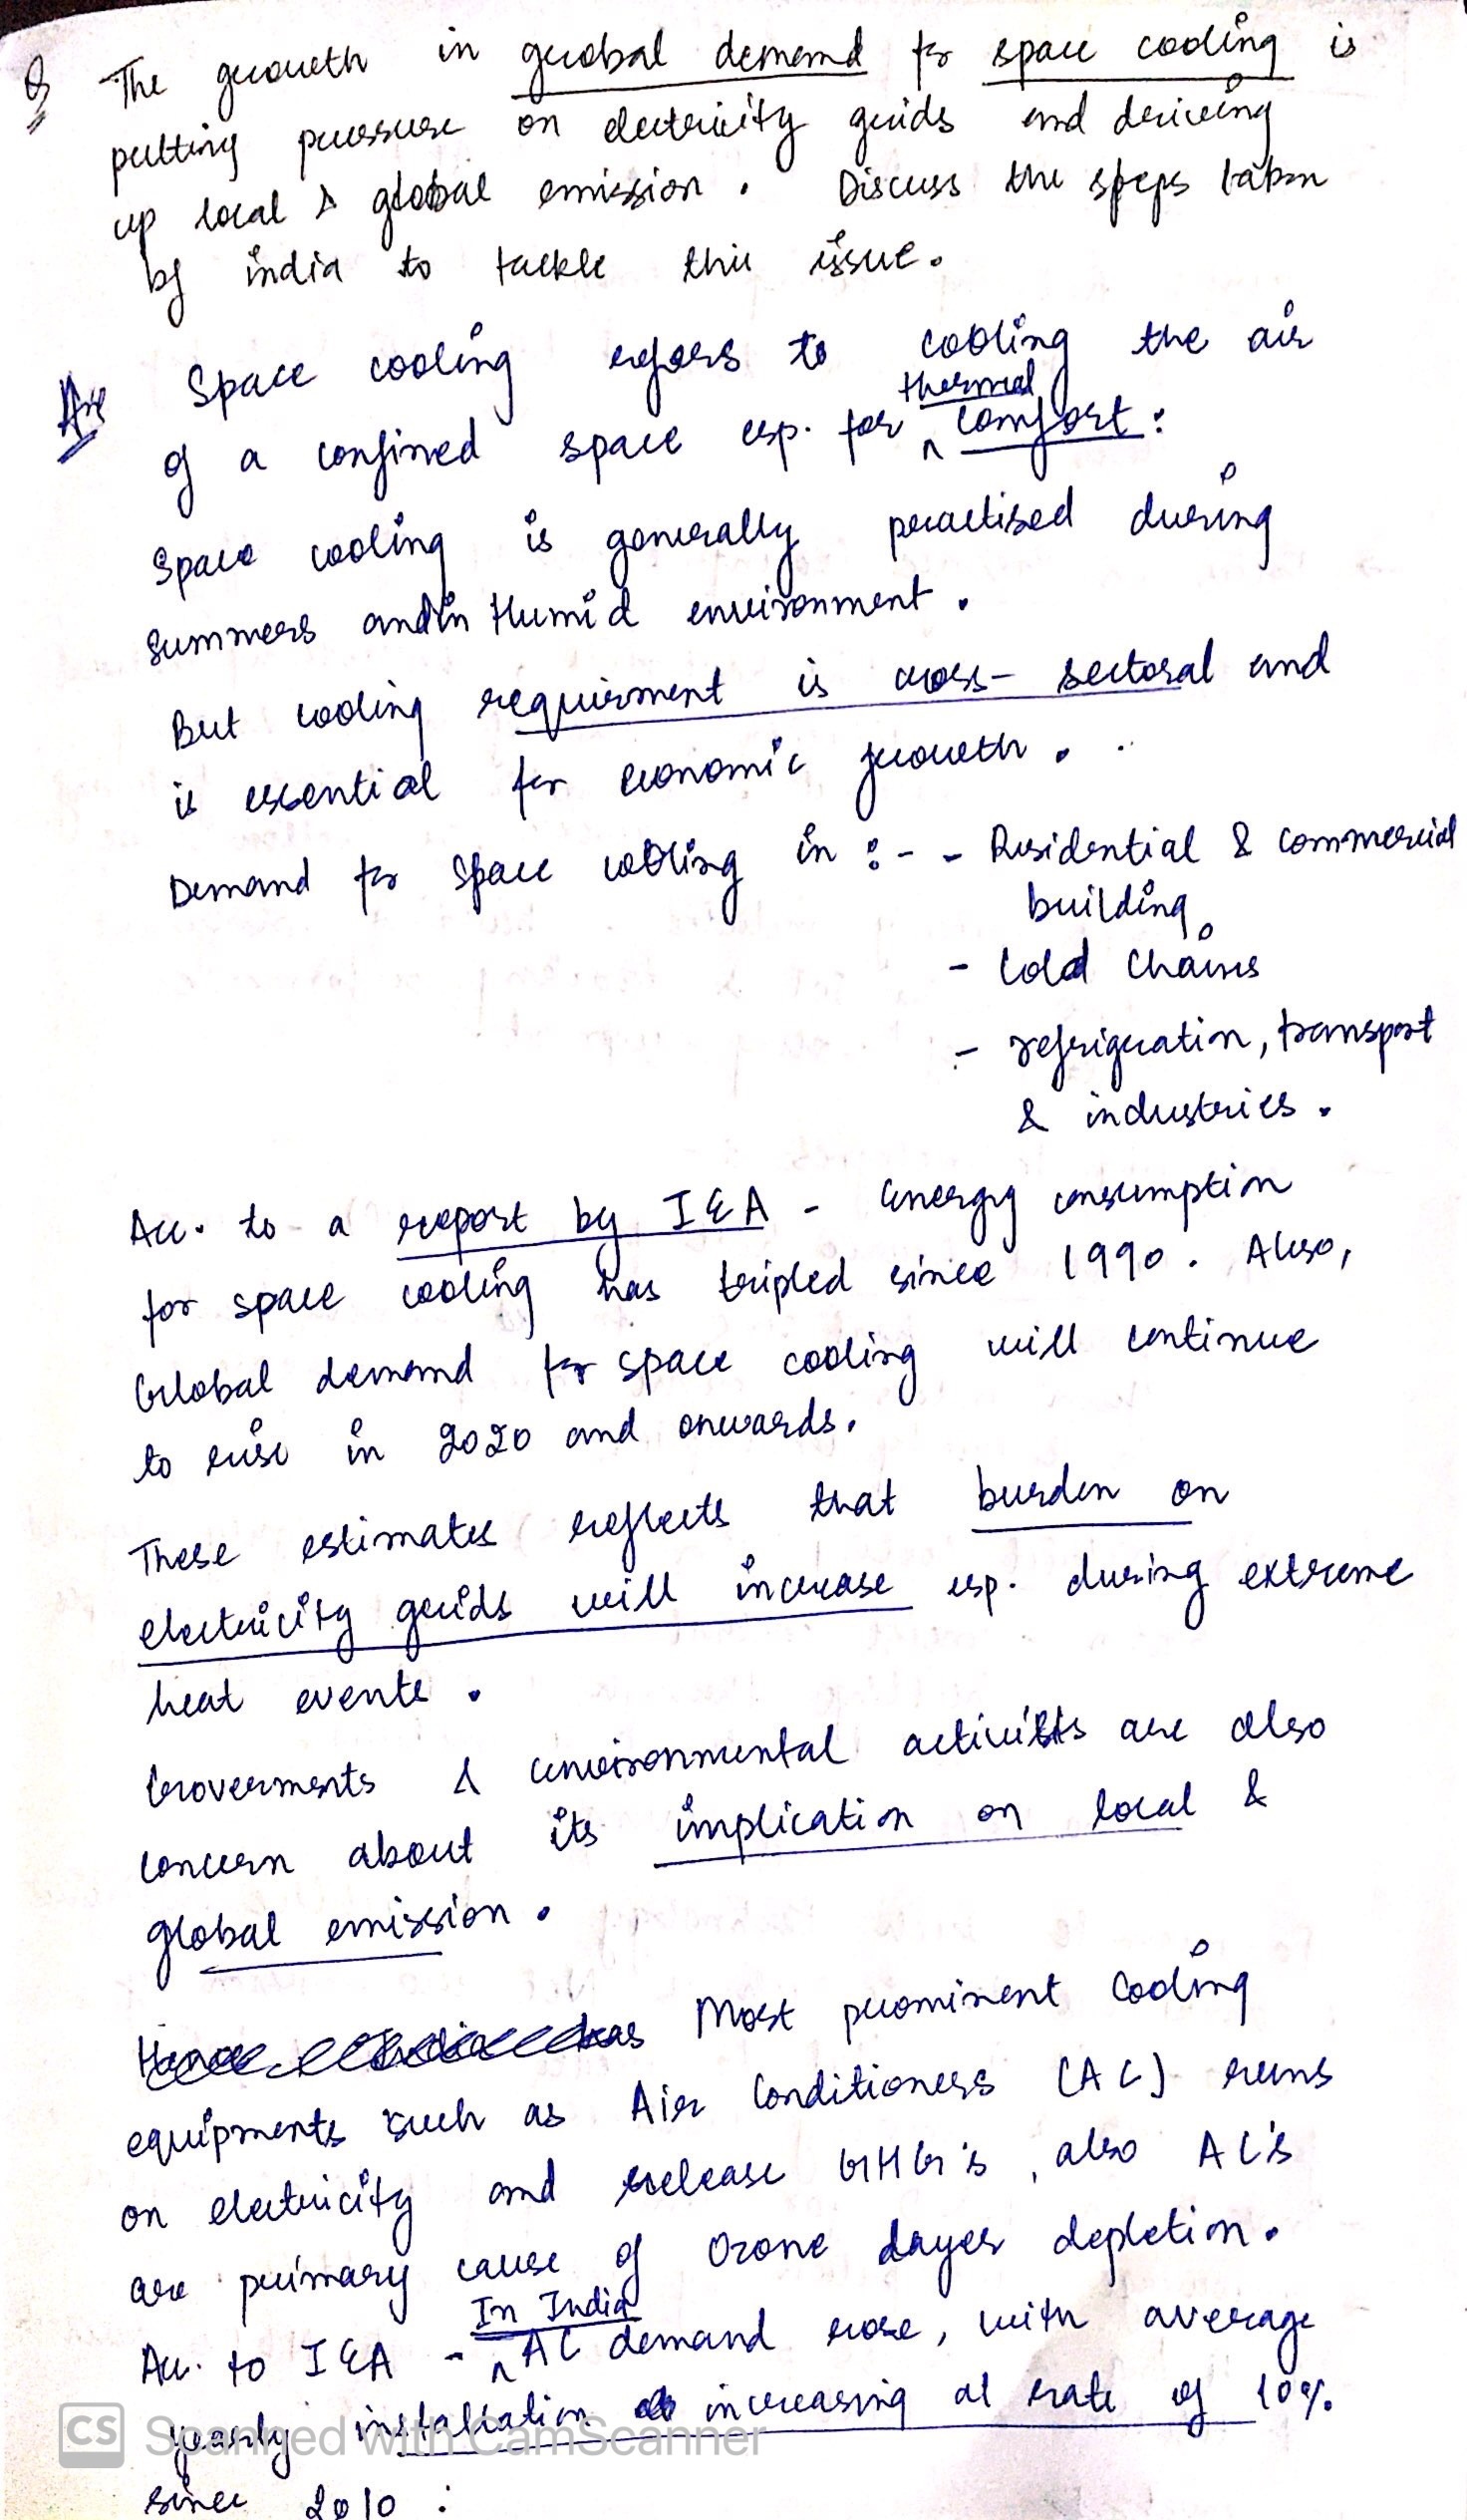 Q The growth in global demand for space cooling is
putting pressure on electricity grids and driving
up local & global emission. Discuss the steps taken
by india to tackle this issue.
Ans Space cooling refers to cooling the air
of a confined space esp. for thermal comfort.
Space cooling is generally practised during
summers and in Humid environment.
But cooling requirment is cross-sectoral and
is essential for economic growth.
Demand for space cooling in :- - Residential & commercial
building
- Cold Chains
- refrigeration, transport
& industries.
Acc. to a report by IEA - Energy consumption
for space cooling has tripled since 1990. Also,
Global demand for space cooling will continue
to rise in 2020 and onwards.
These estimates reflects that burden on
electricity grids will increase esp. during extreme
heat events.
Goverments & environmental activists are also
concern about its implication on local &
global emission.
Most prominent Cooling
equipments such as Air Conditioners (AC) runs
on electricity and release GHG's, also AC's
are primary cause of Ozone layer depletion.
Acc. to IEA - In India AC demand rose, with average
yearly installation increasing at rate of 10%
since 2010.
CS Scanned with CamScanner